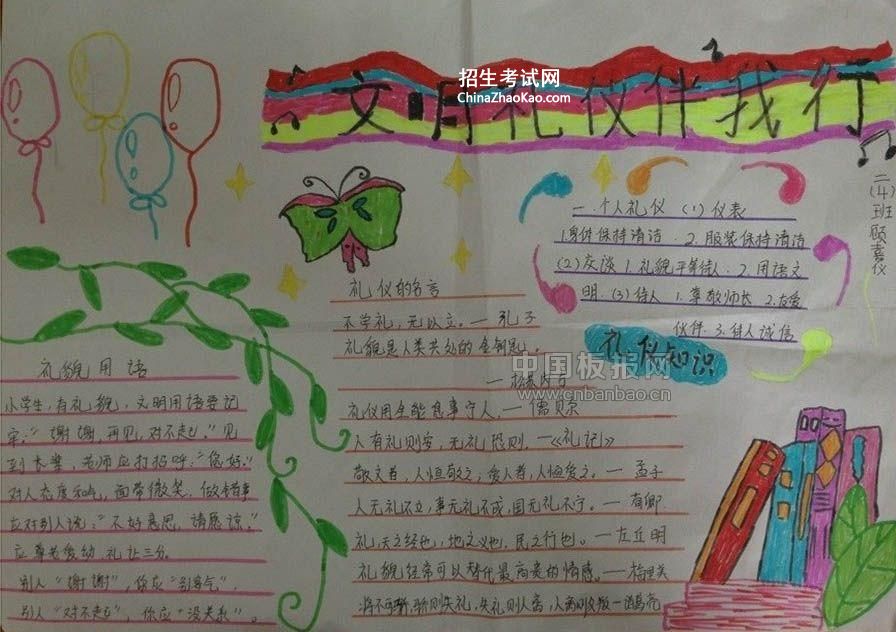 招生考试网
ChinaZhaoKao.com
文明礼仪伴我行
二(4)班顾嘉仪
一.个人礼仪 (1)仪表
1.身体保持清洁. 2.服装保持清洁
(2)交谈 1.礼貌平等待人. 2.用语文
明. (3)待人 1.尊敬师长 2.友爱
伙伴. 3.待人诚信
礼仪知识
中国板报网
www.cnbanbao.cn
礼仪的名言
不学礼,无以立。—孔子
礼貌是人类共处的金钥匙。
—松苏内吉
礼仪周全能息事宁人。—儒贝尔
人有礼则安,无礼恐则.—《礼记》
敬文者,人恒敬之,爱人者,人恒爱之。—孟子
人无礼不立,事无礼不成,国无礼不宁。—荀卿
礼,天之经也,地之义也,民之行也。—左丘明
礼貌经常可以替代最高贵的情感。—梅里美
将不可骄,骄则失礼,失礼则人离,人离则众叛—诸葛亮
礼貌用语
小学生,有礼貌,文明用语要记
牢。“谢谢,再见,对不起。”见
到长辈,老师应打招呼:“您好。”
对人态度和气,面带微笑,做错事
应对别人说:“不好意思,请原谅。”
应尊老爱幼,礼让三分。
别人“谢谢”,你应“别客气”,
别人“对不起”,你应“没关系”。